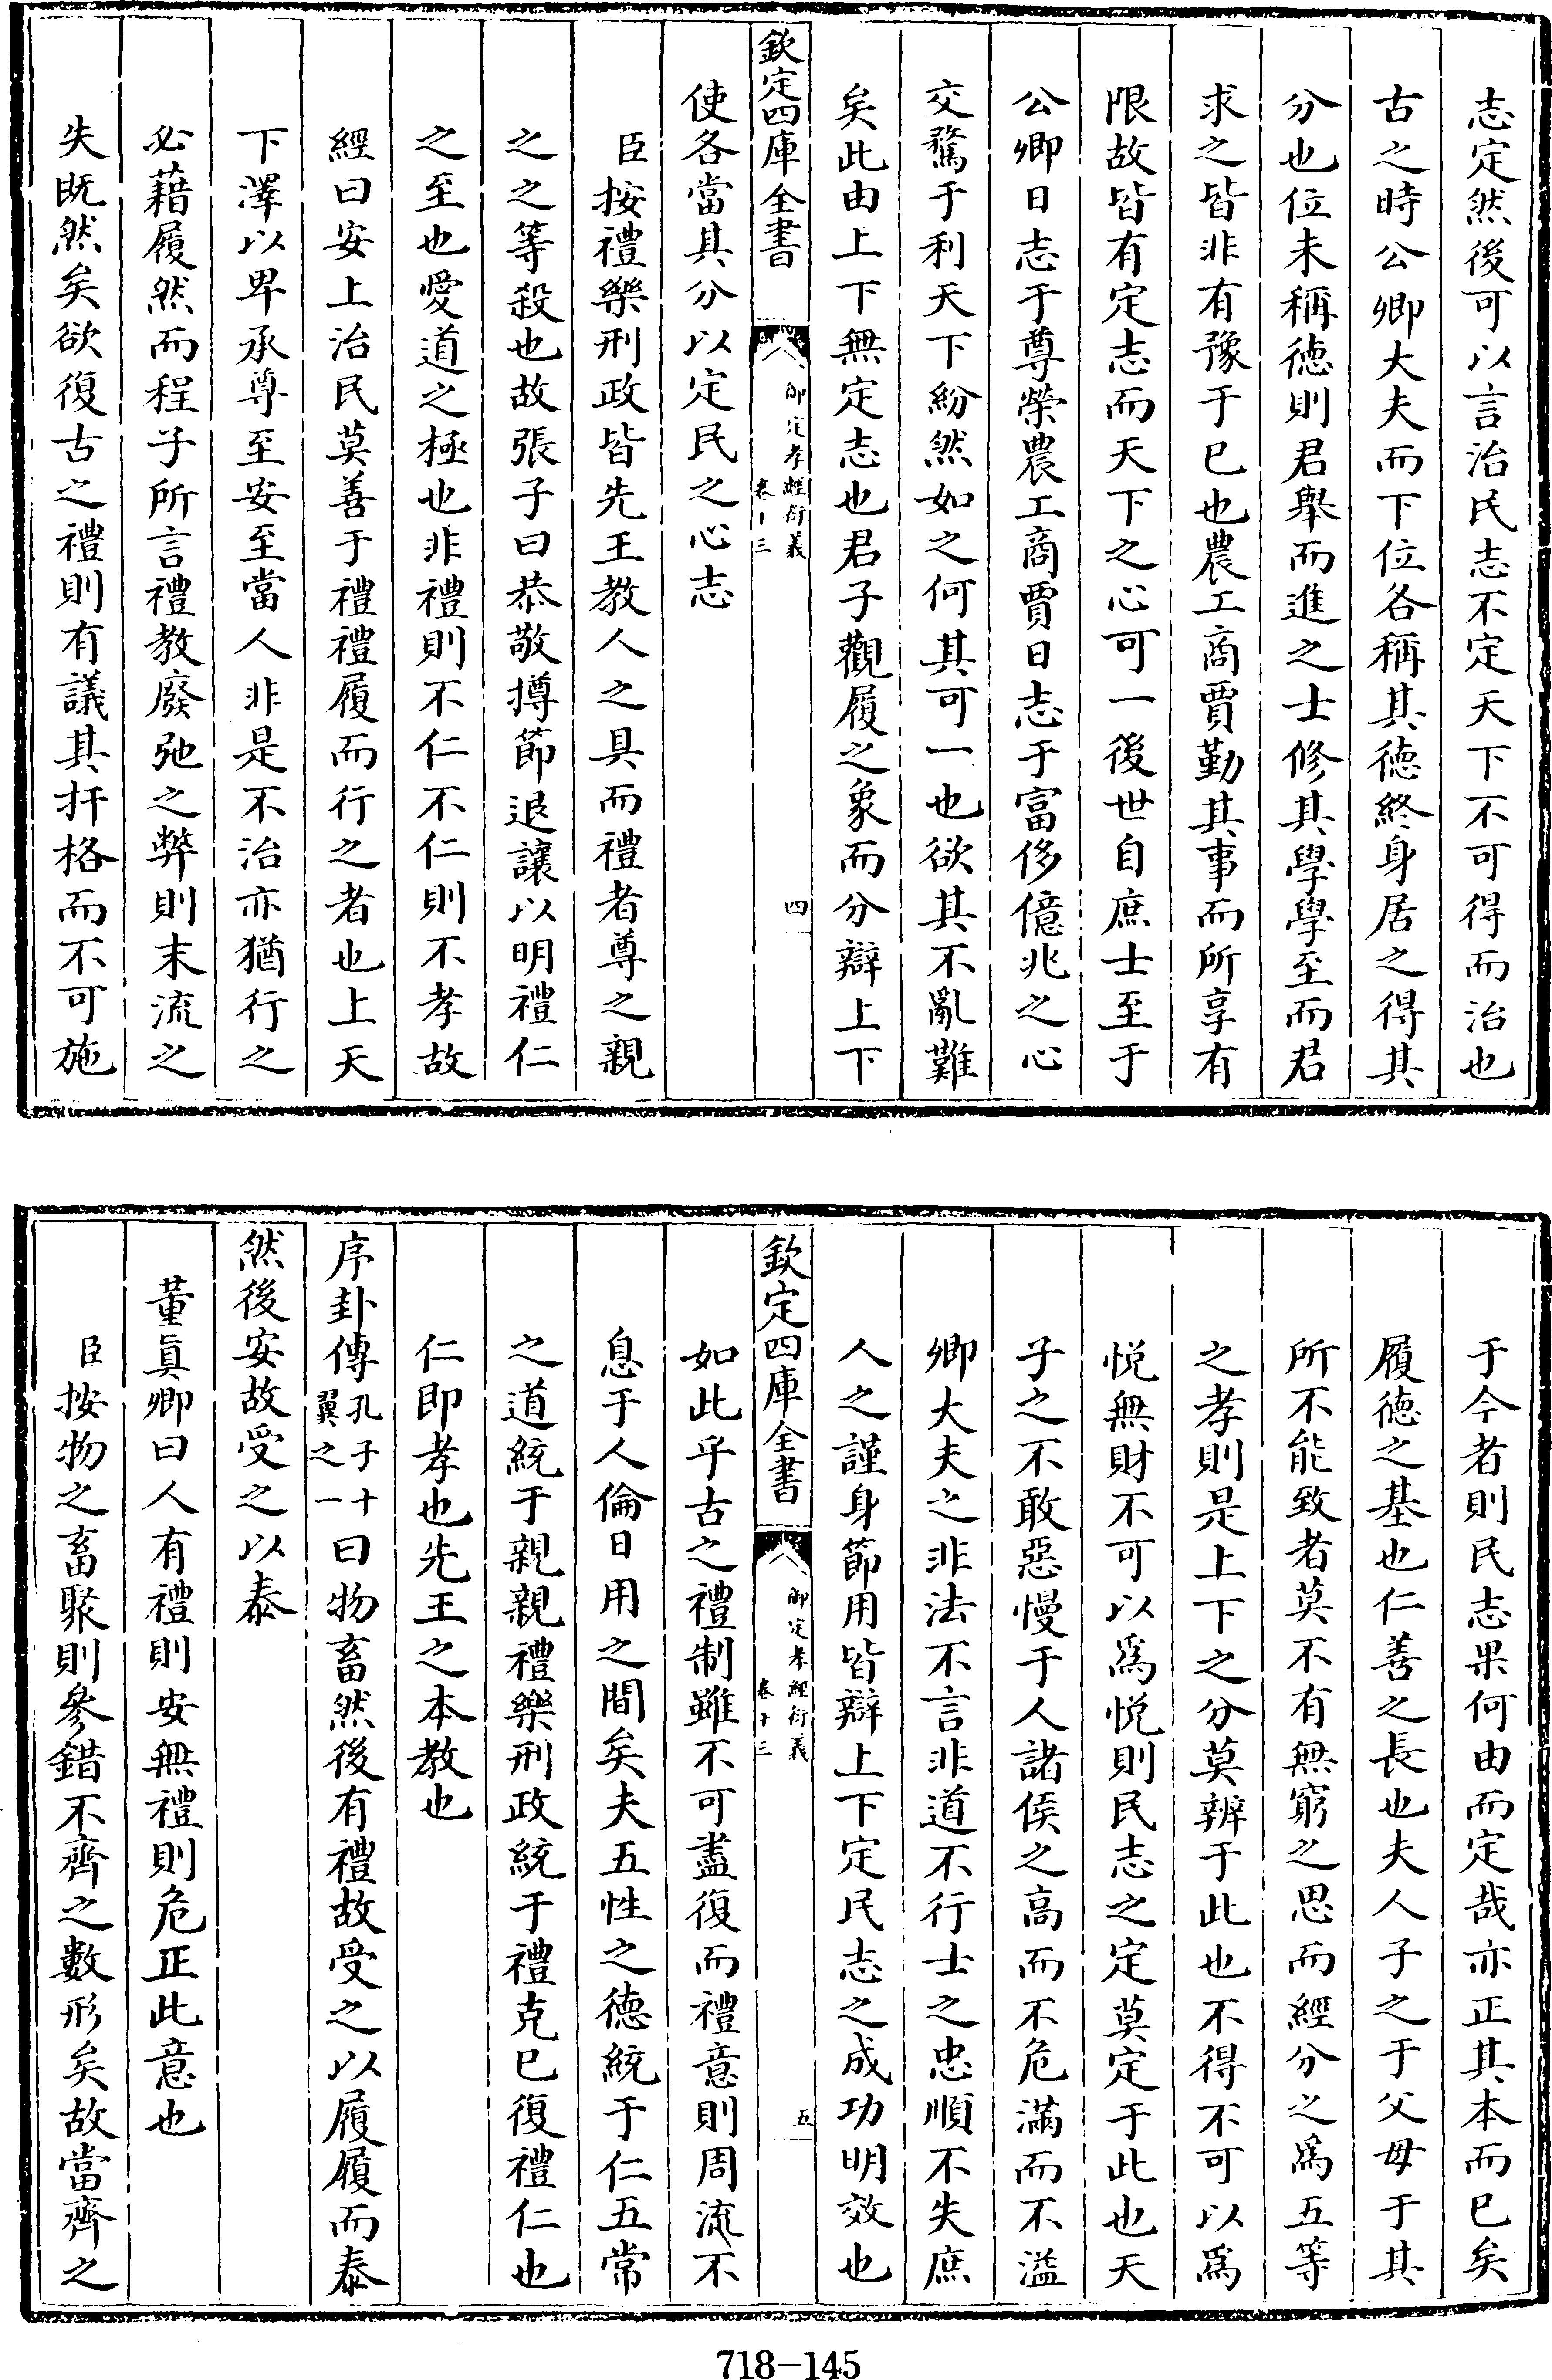 志定然後可以言治民志不定天下不可得而治也
古之時公卿大夫而下位各稱其德終身居之得其
分也位未稱德則君舉而進之士修其學學至而君
求之皆非有豫于已也農工商賈勤其事而所享有
限故皆有定志而天下之心可一後世自庶士至于
公卿日志于尊榮農工商賈日志于富侈億兆之心
交騖于利天下紛然如之何其可一也欲其不亂難
矣此由上下無定志也君子觀履之象而分辯上下
欽定四庫全書
御定孝經衍義
卷十三
四
使各當其分以定民之心志
臣按禮樂刑政皆先王教人之具而禮者尊之親
之之等殺也故張子曰恭敬撙節退讓以明禮仁
之至也愛道之極也非禮則不仁不仁則不孝故
經曰安上治民莫善于禮禮履而行之者也上天
下澤以卑承尊至安至當人非是不治亦猶行之
必藉履然而程子所言禮教廢弛之弊則末流之
失既然矣欲復古之禮則有議其扞格而不可施
于今者則民志果何由而定哉亦正其本而已矣
履德之基也仁善之長也夫人子之于父母于其
所不能致者莫不有無窮之思而經分之為五等
之孝則是上下之分莫辨于此也不得不可以為
悅無財不可以爲悅則民志之定莫定于此也天
子之不敢惡慢于人諸侯之高而不危滿而不溢
卿大夫之非法不言非道不行士之忠順不失庶
人之謹身節用皆辯上下定民志之成功明效也
欽定四庫全書
御定孝經衍義
卷十三
五
如此乎古之禮制雖不可盡復而禮意則周流不
息于人倫日用之間矣夫五性之德統于仁五常
之道統于親親禮樂刑政統于禮克已復禮仁也
仁即孝也先王之本教也
序卦傳孔子十翼之一曰物畜然後有禮故受之以履履而泰
然後安故受之以泰
董真卿曰人有禮則安無禮則危正此意也
臣按物之畜聚則參錯不齊之數形矣故當齊之
718-145